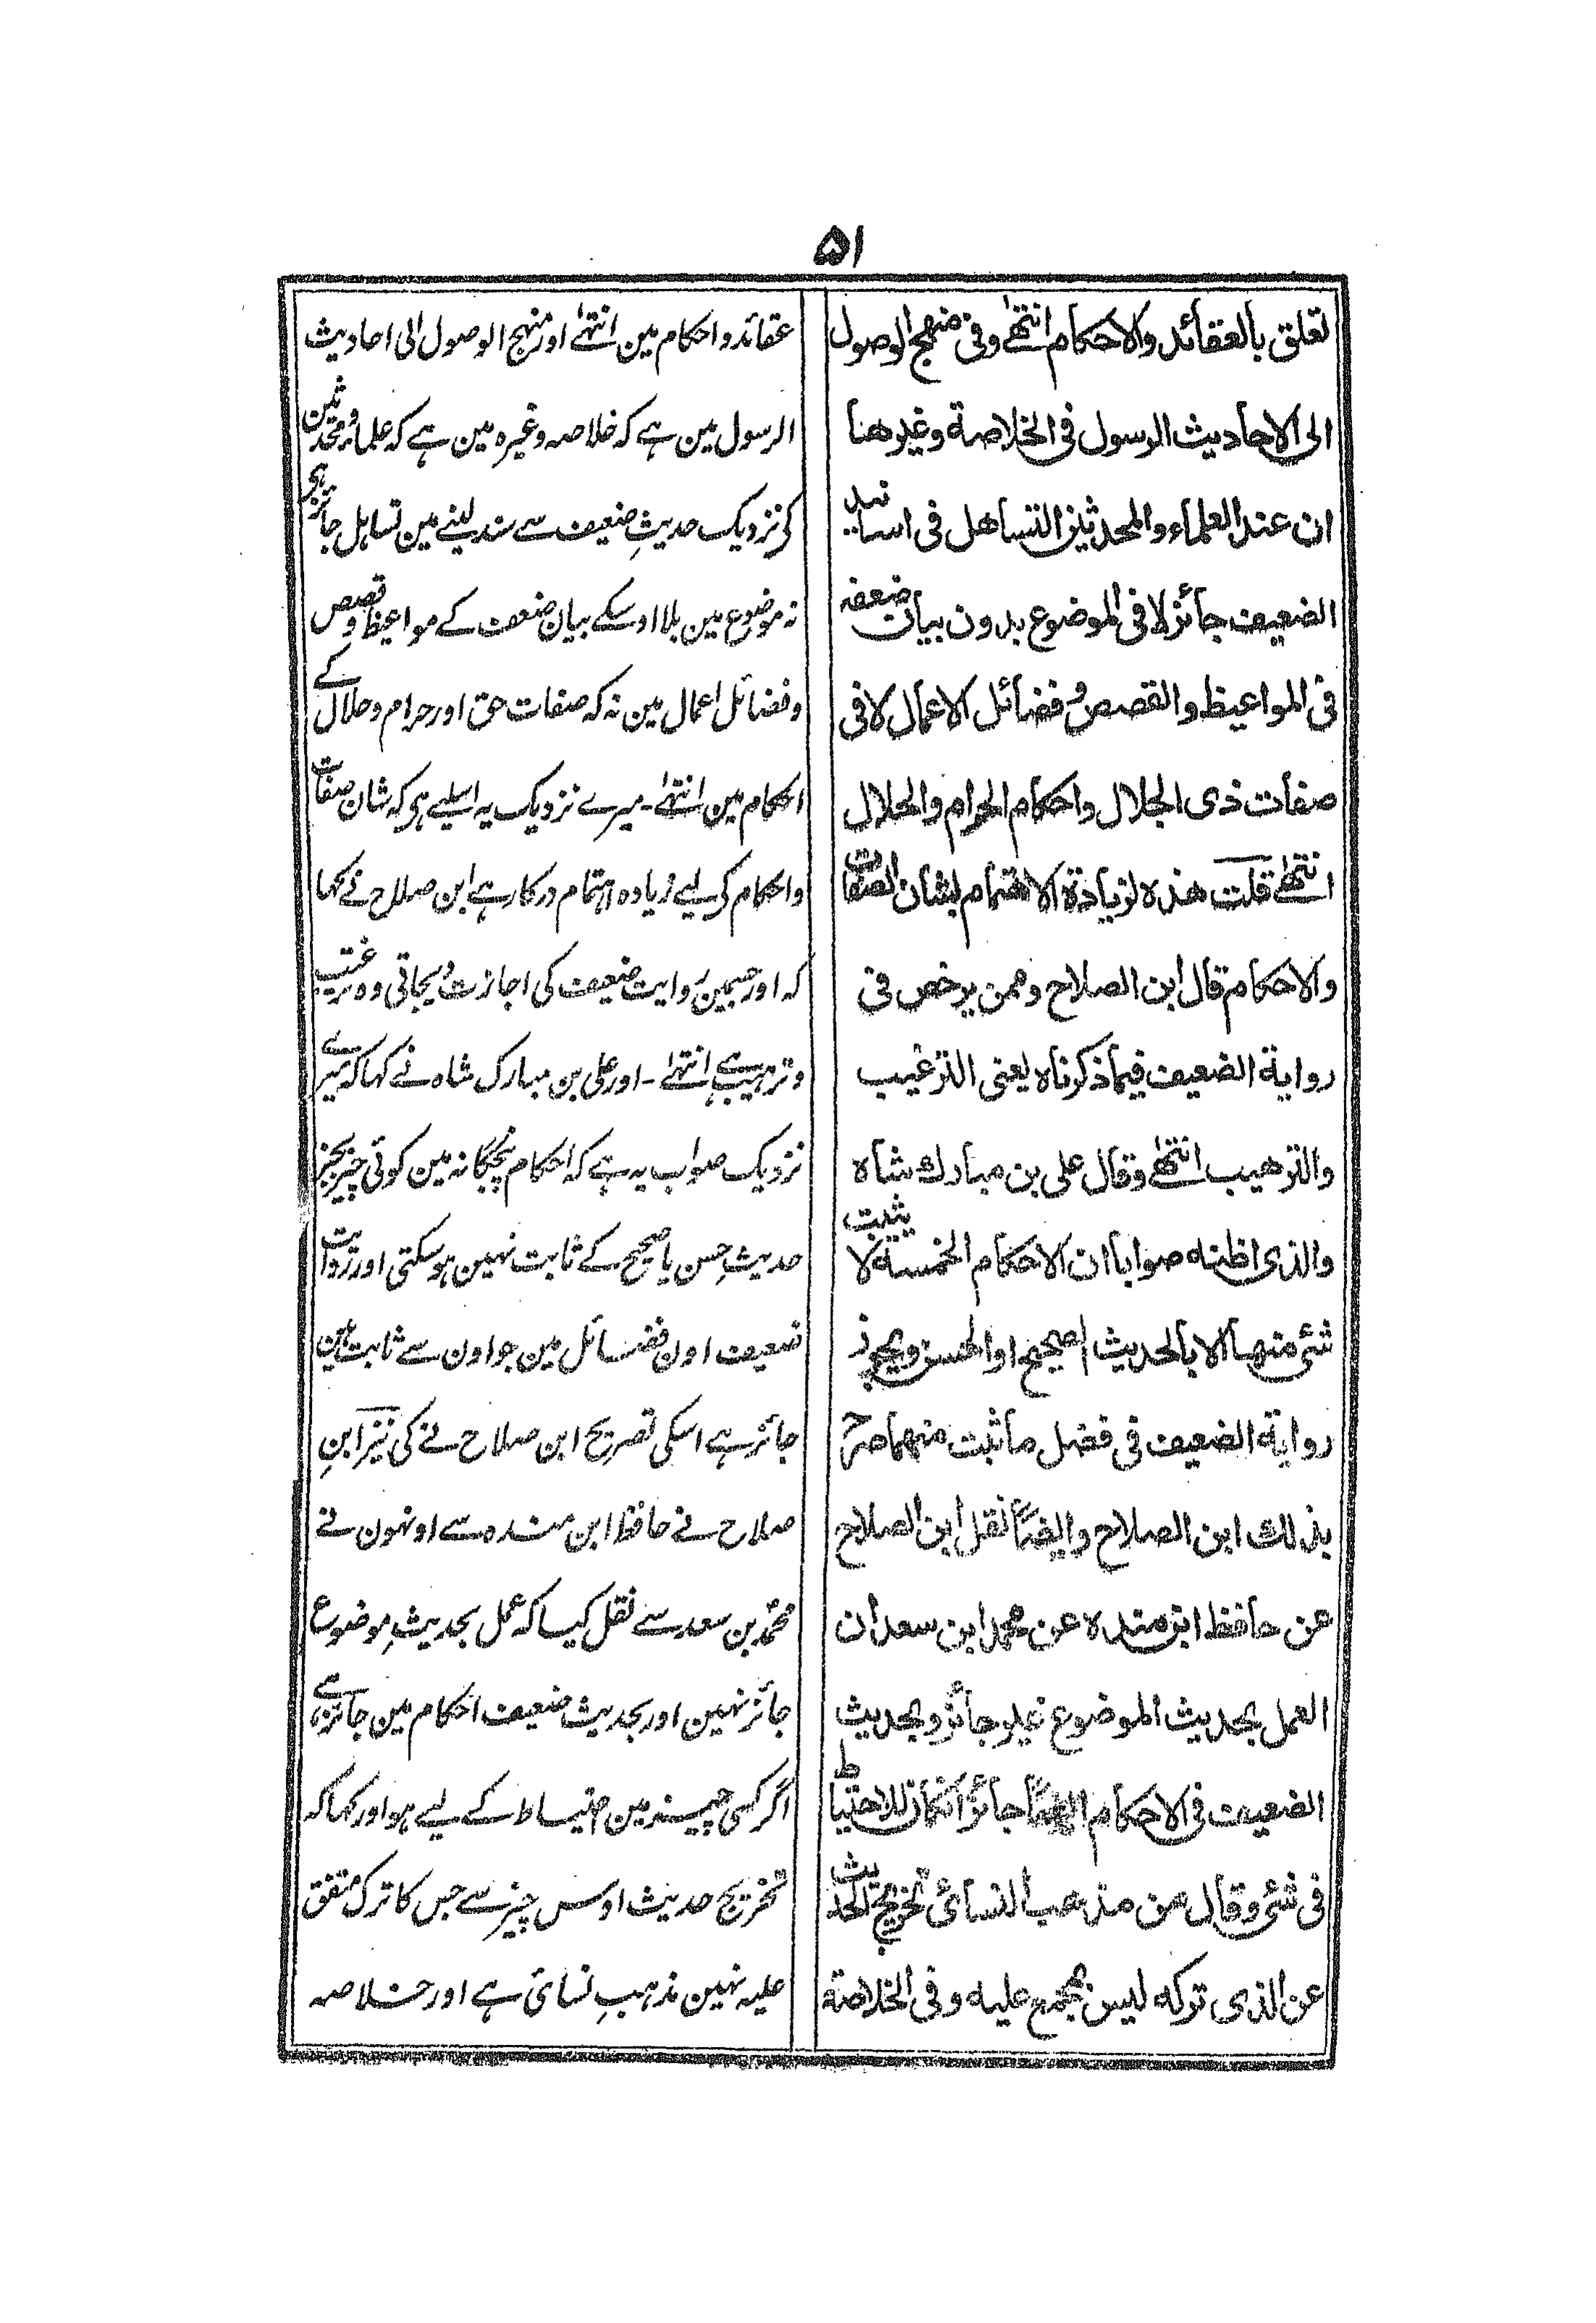 ۵۱
تعلق بالعقائد والاحكام انتهٰے وفى منهج الوصول
الى الاحاديث الرسول فى الخلاصة وغيرهنا
ان عند العلماء والمحدثين التساهل فى اسانيد
الضعيف جائز لا فى الموضوع بدون بيان ضعفه
فى المواعيظ والقصص وفضائل الاعمال لا فى
صفات ذى الجلال واحكام الحرام والحلال
انتهٰے قلت هذه لزيادة الاهتمام لشان الصفات
والاحكام قال ابن الصلاح وممن يرخص فى
رواية الضعيف فيما ذكرناه يعنى الترغيب
والترهيب انتهٰے وقال على بن مبارك شاه
والذى اظنه صوابا ان الاحكام الخمسة لا يثبت
شئ منها الا بالحديث الصحيح او الحسن ويجوز
رواية الضعيف فى فضل ما ثبت منهما صرح
بذلك ابن الصلاح وايضًا نقل ابن الصلاح
عن حافظ ابن منده عن محمد ابن سعد ان
العمل بحديث الموضوع غير جائز وبحديث
الضعيف فى الاحكام ايضًا جائز انكان للاحتياط
فى شئ وقال من مذهب النسائى تخريج الحديث
عن الذى تركه ليس بمجمع عليه وفى الخلاصة
عقائد و احکام مین انتہٰے اور منہج الوصول الی احادیث
الرسول مین ہے کہ خلاصہ وغیرہ مین ہے کہ علماء و محدثین
کی نزدیک حدیثِ ضعیف سے سند لینے مین تساہل جائز ہی
نہ موضوع مین بلا اوسکے بیان ضعف کے مواعیظ و قصص
و فضائل اعمال مین نہ کہ صفات حق اور حرام و حلال کے
احکام مین انتہٰے۔ میرے نزدیک یہ اسلیے ہی کہ شان صفات
و احکام کی لیے زیادہ اہتمام درکار ہے ابن صلاح نے کہا
کہ اور جسمین روایت ضعیف کی اجازت دیجاتی وہ ترغیب
و ترہیب ہے انتہٰے۔ اور علی بن مبارک شاہ نے کہا کہ میرے
نزدیک صواب یہ ہے کہ احکام پنجگانہ مین کوئی چیز بجز
حدیثِ حسن یا صحیح کے ثابت نہین ہو سکتی اور روایت
ضعیف اون فضائل مین جو اون سے ثابت ہین
جائز ہے اسکی تصریح ابن صلاح نے کی نیز ابنِ
صلاح نے حافظ ابن مندہ سے اونہون نے
محمد بن سعد سے نقل کیا کہ عمل بحدیثِ موضوع
جائز نہین اور بحدیث ضعیف احکام مین جائز ہے
اگر کسی چیز مین احتیاط کے لیے ہو اور کہا کہ
تخریج حدیث اوس چیز سے جس کا ترک متفق
علیہ نہین مذہبِ نسائی ہے اور خلاصہ